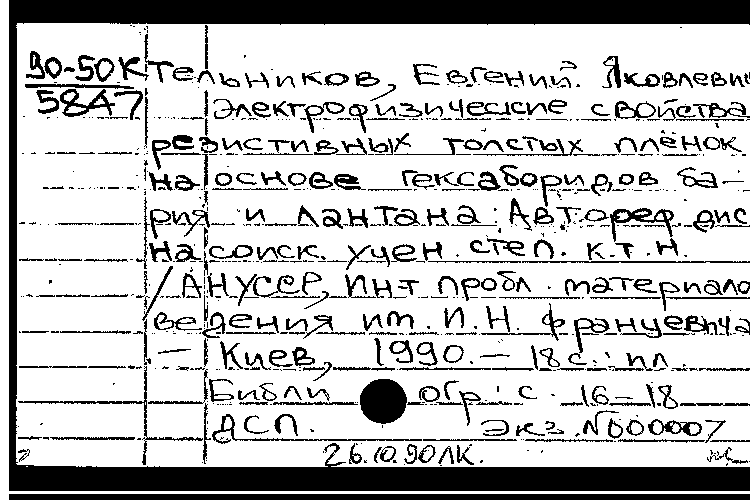 90-50К Тельников, Евгений Яковлевич
5847 Электрофизические свойства
резистивных толстых плёнок
на основе гексаборидов ба-
рия и лантана: Автореф. дис
на соиск. учен. степ. к.т.н.
/ АНУССР, Ин-т пробл. материало
ведения им. И.Н. Францевича
— Киев, 1990. — 18 с.: ил.
Библиогр.: с. 16-18
ДСП. Экз. №000007
26.10.90 ЛК.